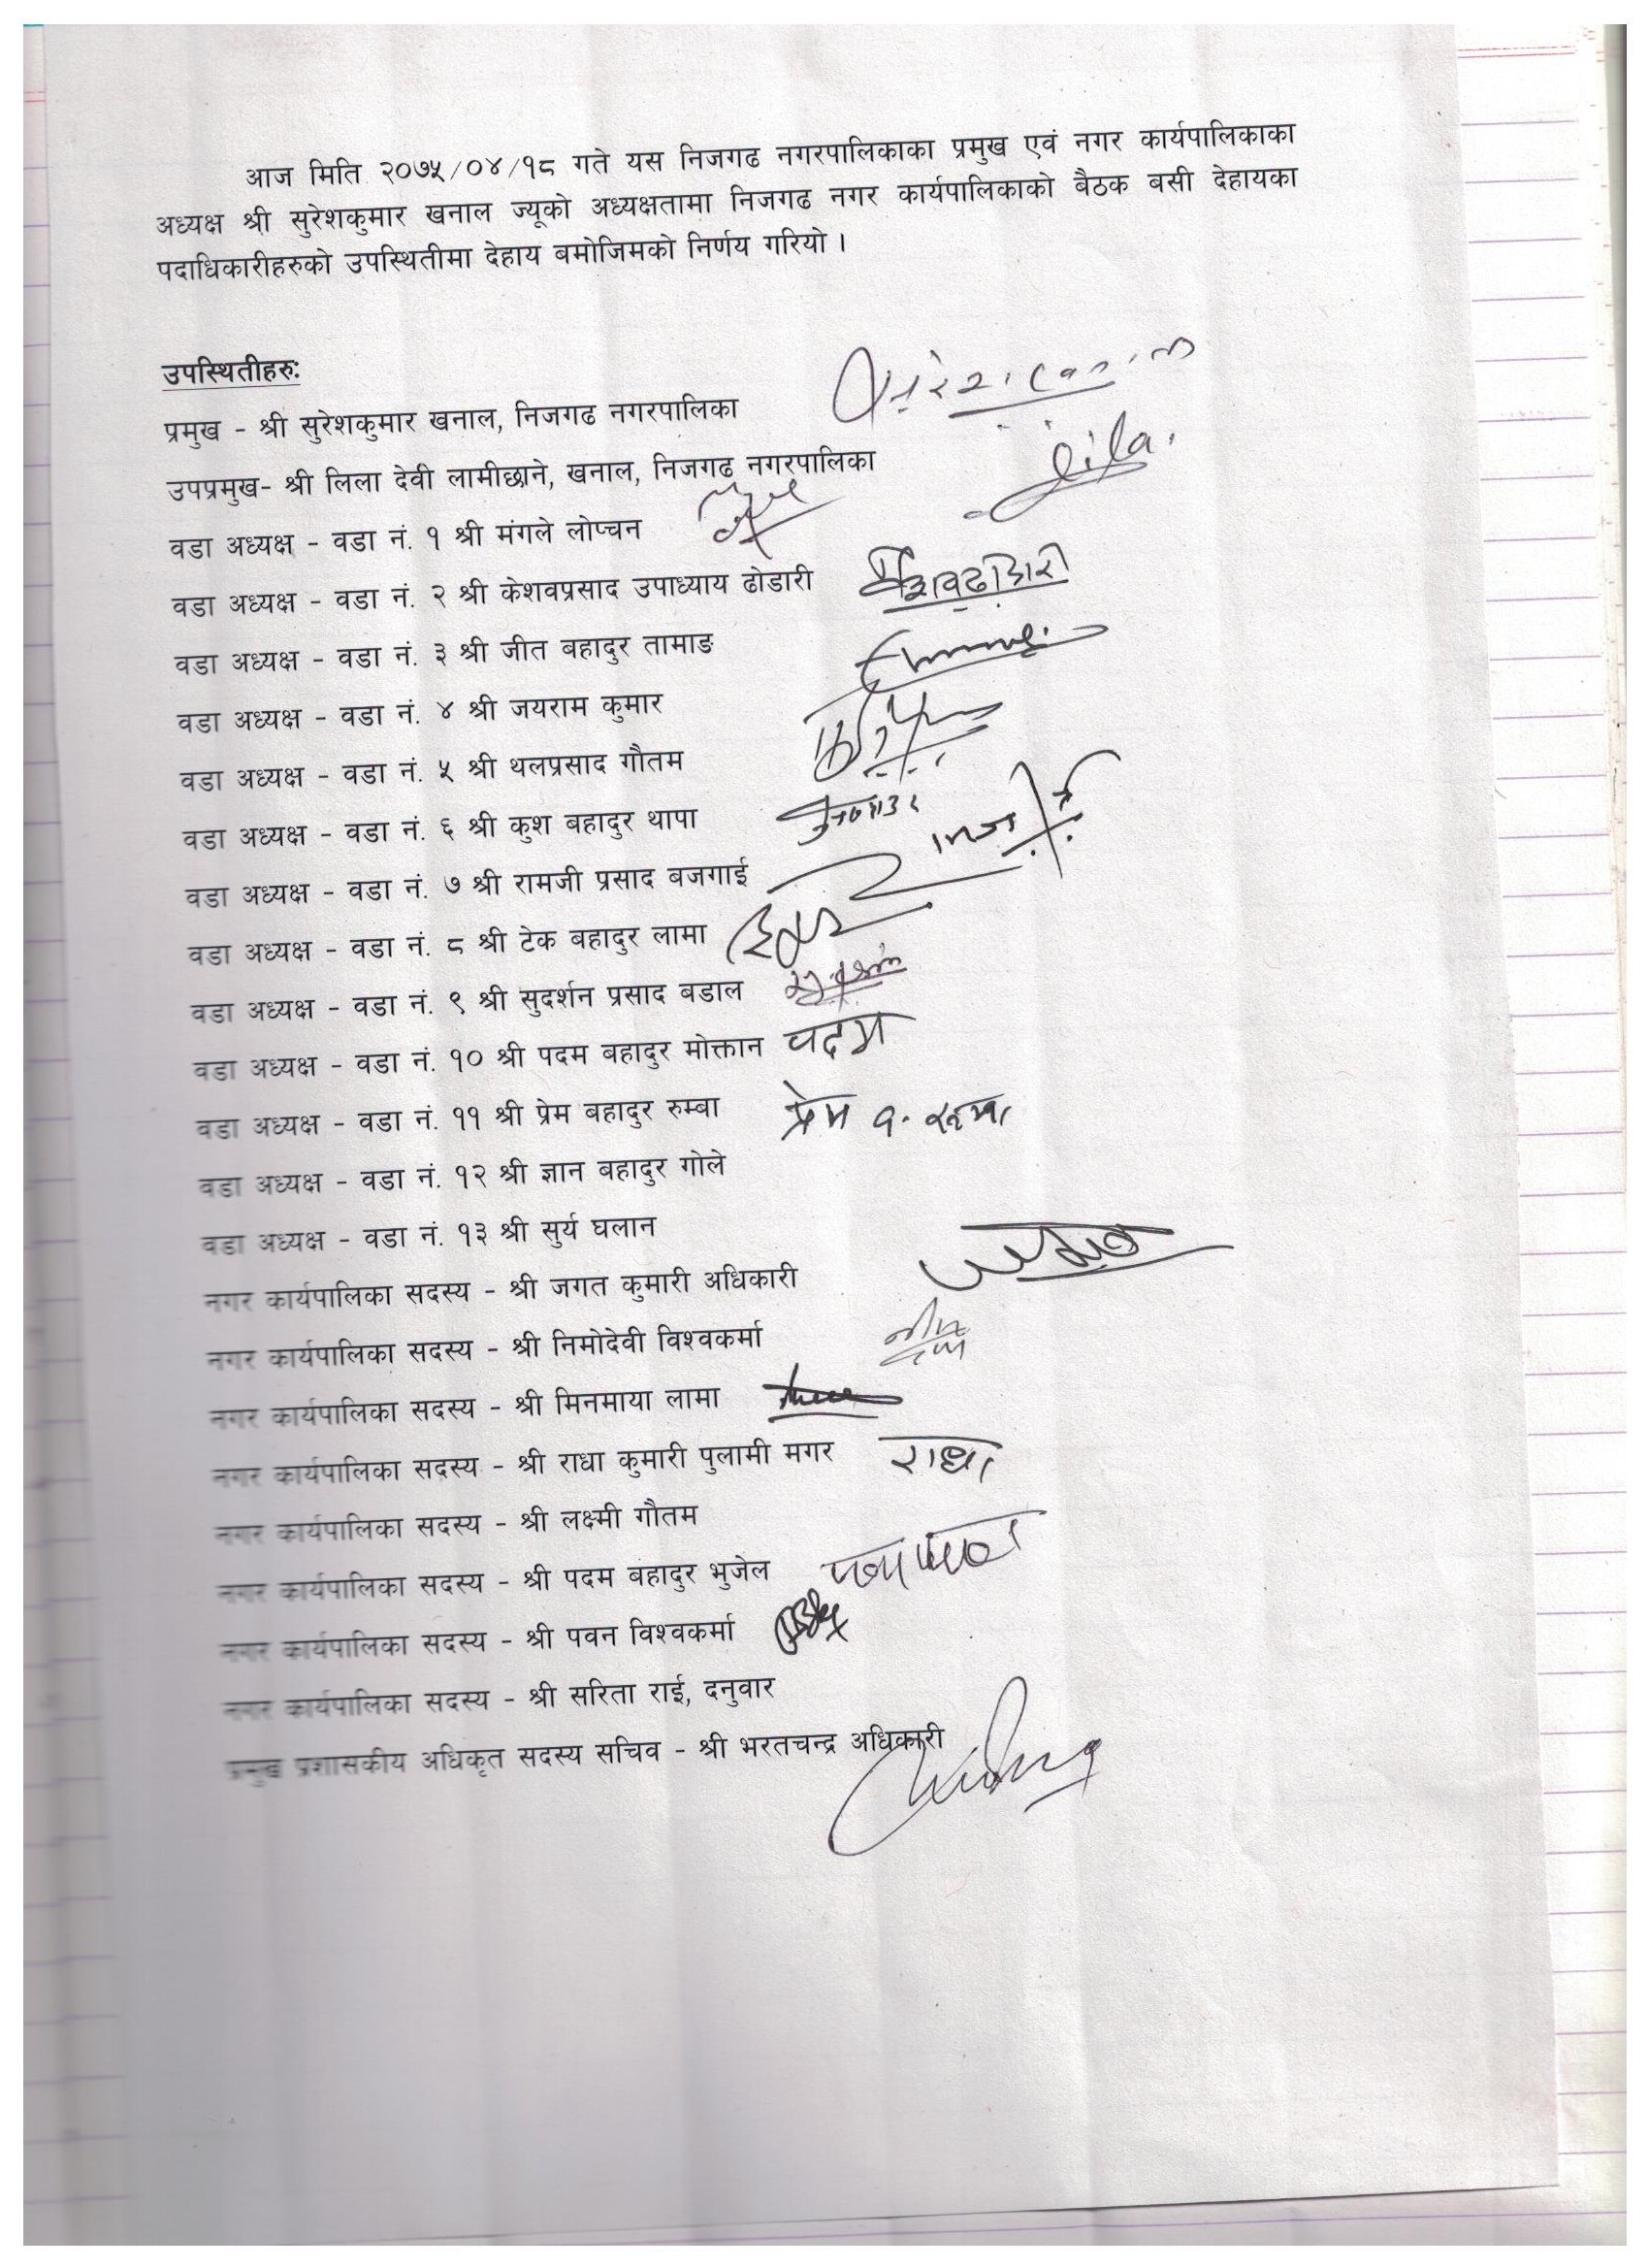 आज मिति २०७५/०४/१८ गते यस निजगढ नगरपालिकाका प्रमुख एवं नगर कार्यपालिकाका
अध्यक्ष श्री सुरेशकुमार खनाल ज्यूको अध्यक्षतामा निजगढ नगर कार्यपालिकाको बैठक बसी देहायका
पदाधिकारीहरुको उपस्थितीमा देहाय बमोजिमको निर्णय गरियो ।
उपस्थितीहरुः
प्रमुख - श्री सुरेशकुमार खनाल, निजगढ नगरपालिका
उपप्रमुख- श्री लिला देवी लामीछाने, खनाल, निजगढ नगरपालिका lila.
वडा अध्यक्ष - वडा नं. १ श्री मंगले लोप्चन
वडा अध्यक्ष - वडा नं. २ श्री केशवप्रसाद उपाध्याय ढोडारी
वडा अध्यक्ष - वडा नं. ३ श्री जीत बहादुर तामाङ
वडा अध्यक्ष - वडा नं. ४ श्री जयराम कुमार
वडा अध्यक्ष - वडा नं. ५ श्री थलप्रसाद गौतम
वडा अध्यक्ष - वडा नं. ६ श्री कुश बहादुर थापा
वडा अध्यक्ष - वडा नं. ७ श्री रामजी प्रसाद बजगाई
वडा अध्यक्ष - वडा नं. ८ श्री टेक बहादुर लामा
वडा अध्यक्ष - वडा नं. ९ श्री सुदर्शन प्रसाद बडाल
वडा अध्यक्ष - वडा नं. १० श्री पदम बहादुर मोक्तान पदम
वडा अध्यक्ष - वडा नं. ११ श्री प्रेम बहादुर रुम्बा प्रेम ब. रुम्बा
वडा अध्यक्ष - वडा नं. १२ श्री ज्ञान बहादुर गोले
वडा अध्यक्ष - वडा नं. १३ श्री सुर्य घलान
नगर कार्यपालिका सदस्य - श्री जगत कुमारी अधिकारी
नगर कार्यपालिका सदस्य - श्री निमोदेवी विश्वकर्मा
नगर कार्यपालिका सदस्य - श्री मिनमाया लामा
नगर कार्यपालिका सदस्य - श्री राधा कुमारी पुलामी मगर राधा
नगर कार्यपालिका सदस्य - श्री लक्ष्मी गौतम
नगर कार्यपालिका सदस्य - श्री पदम बहादुर भुजेल
नगर कार्यपालिका सदस्य - श्री पवन विश्वकर्मा
नगर कार्यपालिका सदस्य - श्री सरिता राई, दनुवार
प्रमुख प्रशासकीय अधिकृत सदस्य सचिव - श्री भरतचन्द्र अधिकारी